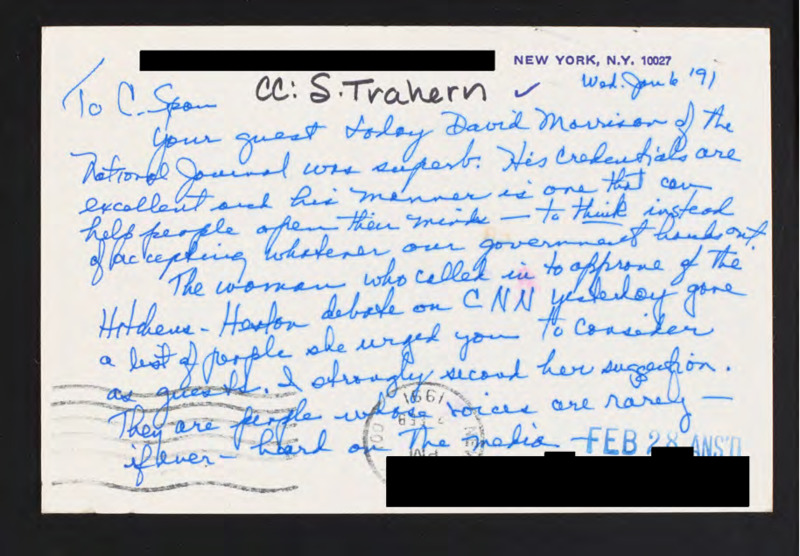 NEW YORK, N.Y. 10027
Wed. Jan 6 '91
To C. Span
CC: S. Trahern ✓
Your guest today David Morrison of the
National Journal was superb. His credentials are
excellent and his manner is one that can
help people open their minds — to think instead
of accepting whatever our government hands out.
The woman who called in to approve of the
Hitchens - Heston debate on CNN yesterday gave
a list of people she urged you to consider
as guests. I strongly second her suggestion.
They are people whose voices are rarely —
if ever - heard on the media —
1991
PM
FEB 28 ANS'D